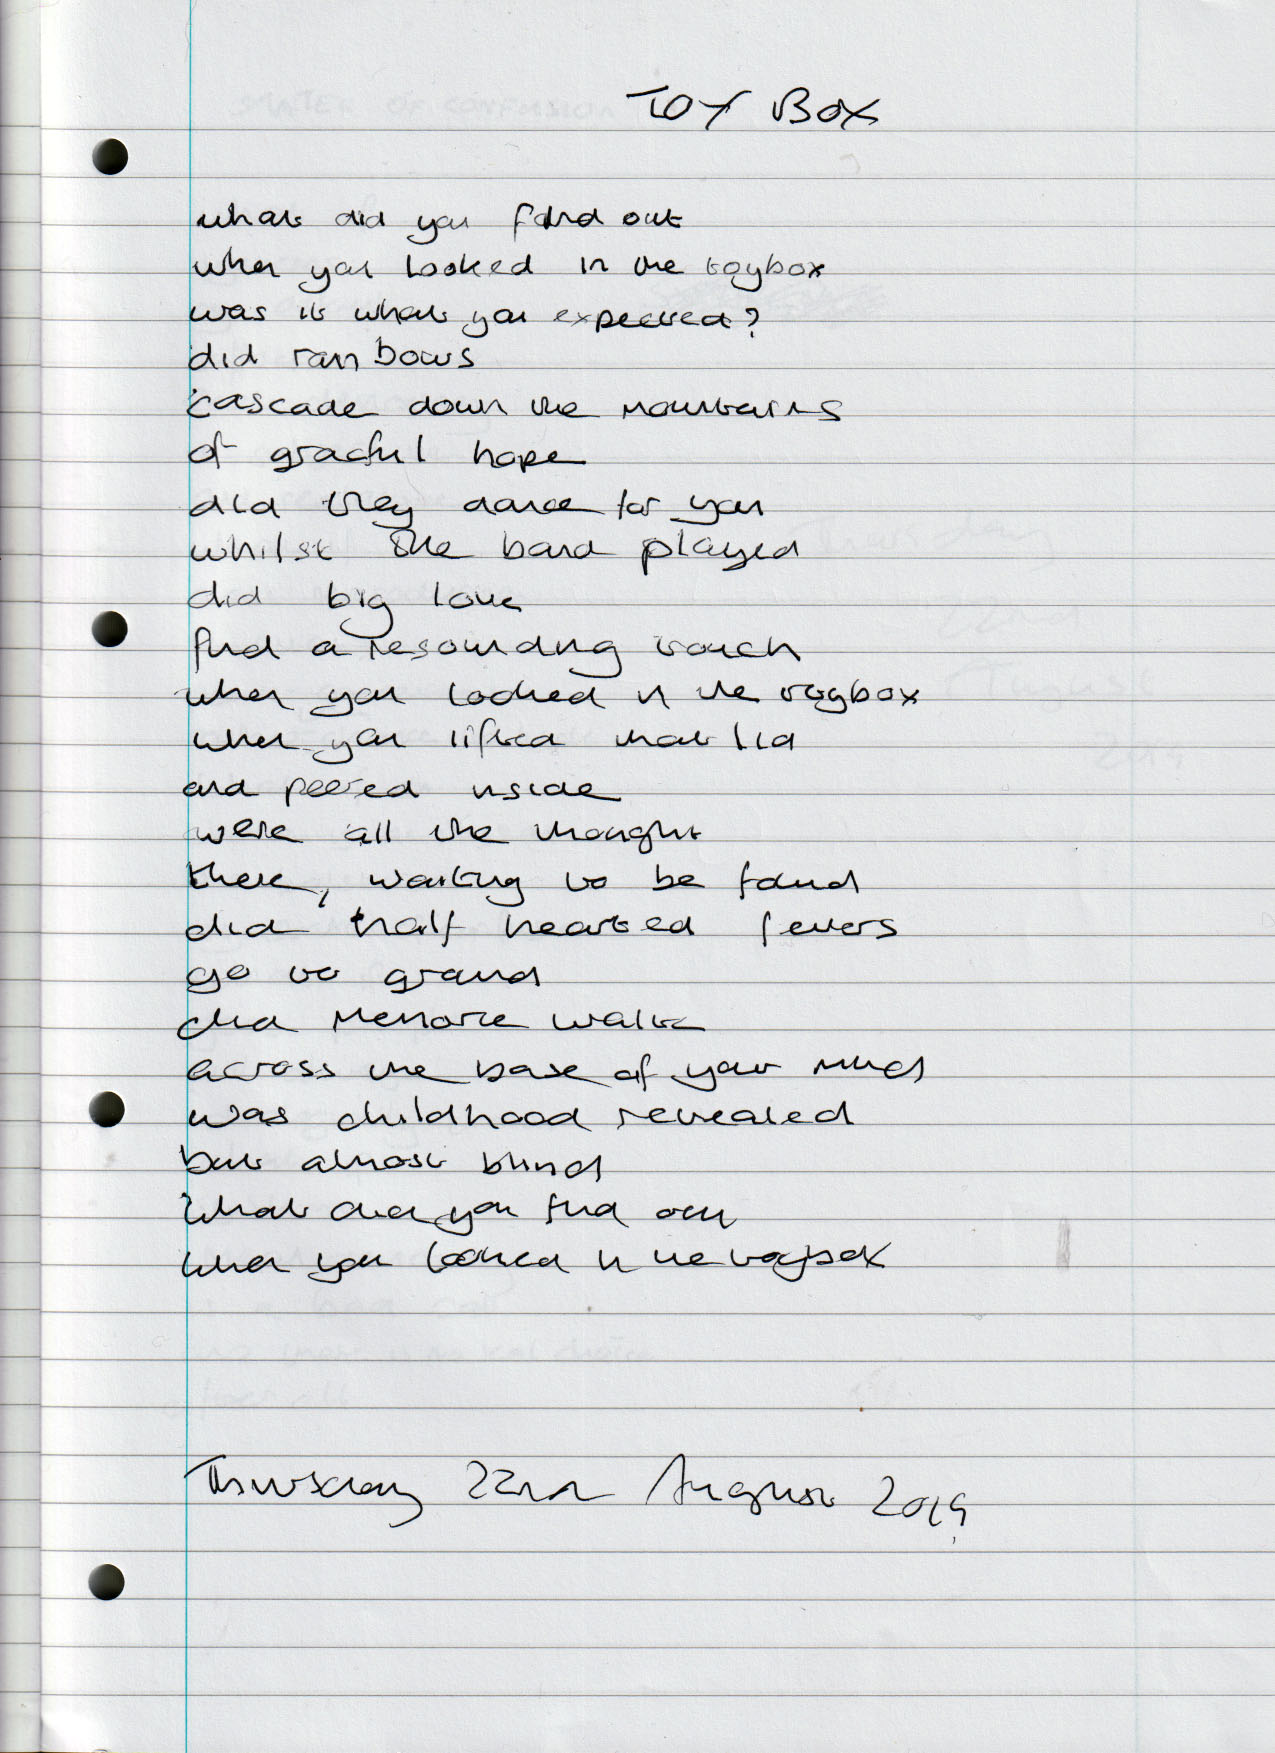 TOY BOX
what did you find out
when you looked in the toybox
was it what you expected?
did rainbows
cascade down the mountains
of graceful hope
did they dance for you
whilst the band played
did big love
find a resounding touch
when you looked in the toybox
when you lifted that lid
and peered inside
were all the thought
there, waiting to be found
did half hearted fevers
go to ground
did memorie walk
across the base of your mind
was childhood revealed
but almost blind
what did you find out
when you looked in the toybox
Thursday 22nd August 2019